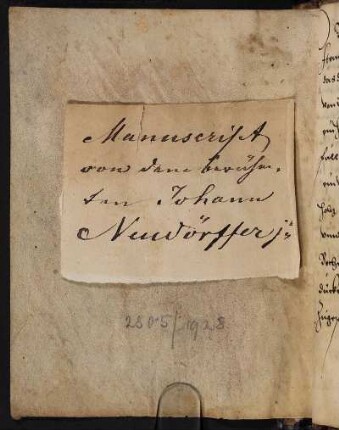 Manuscript
von dem berühm-
ten Johann
Neudörffer jü
2505/1928